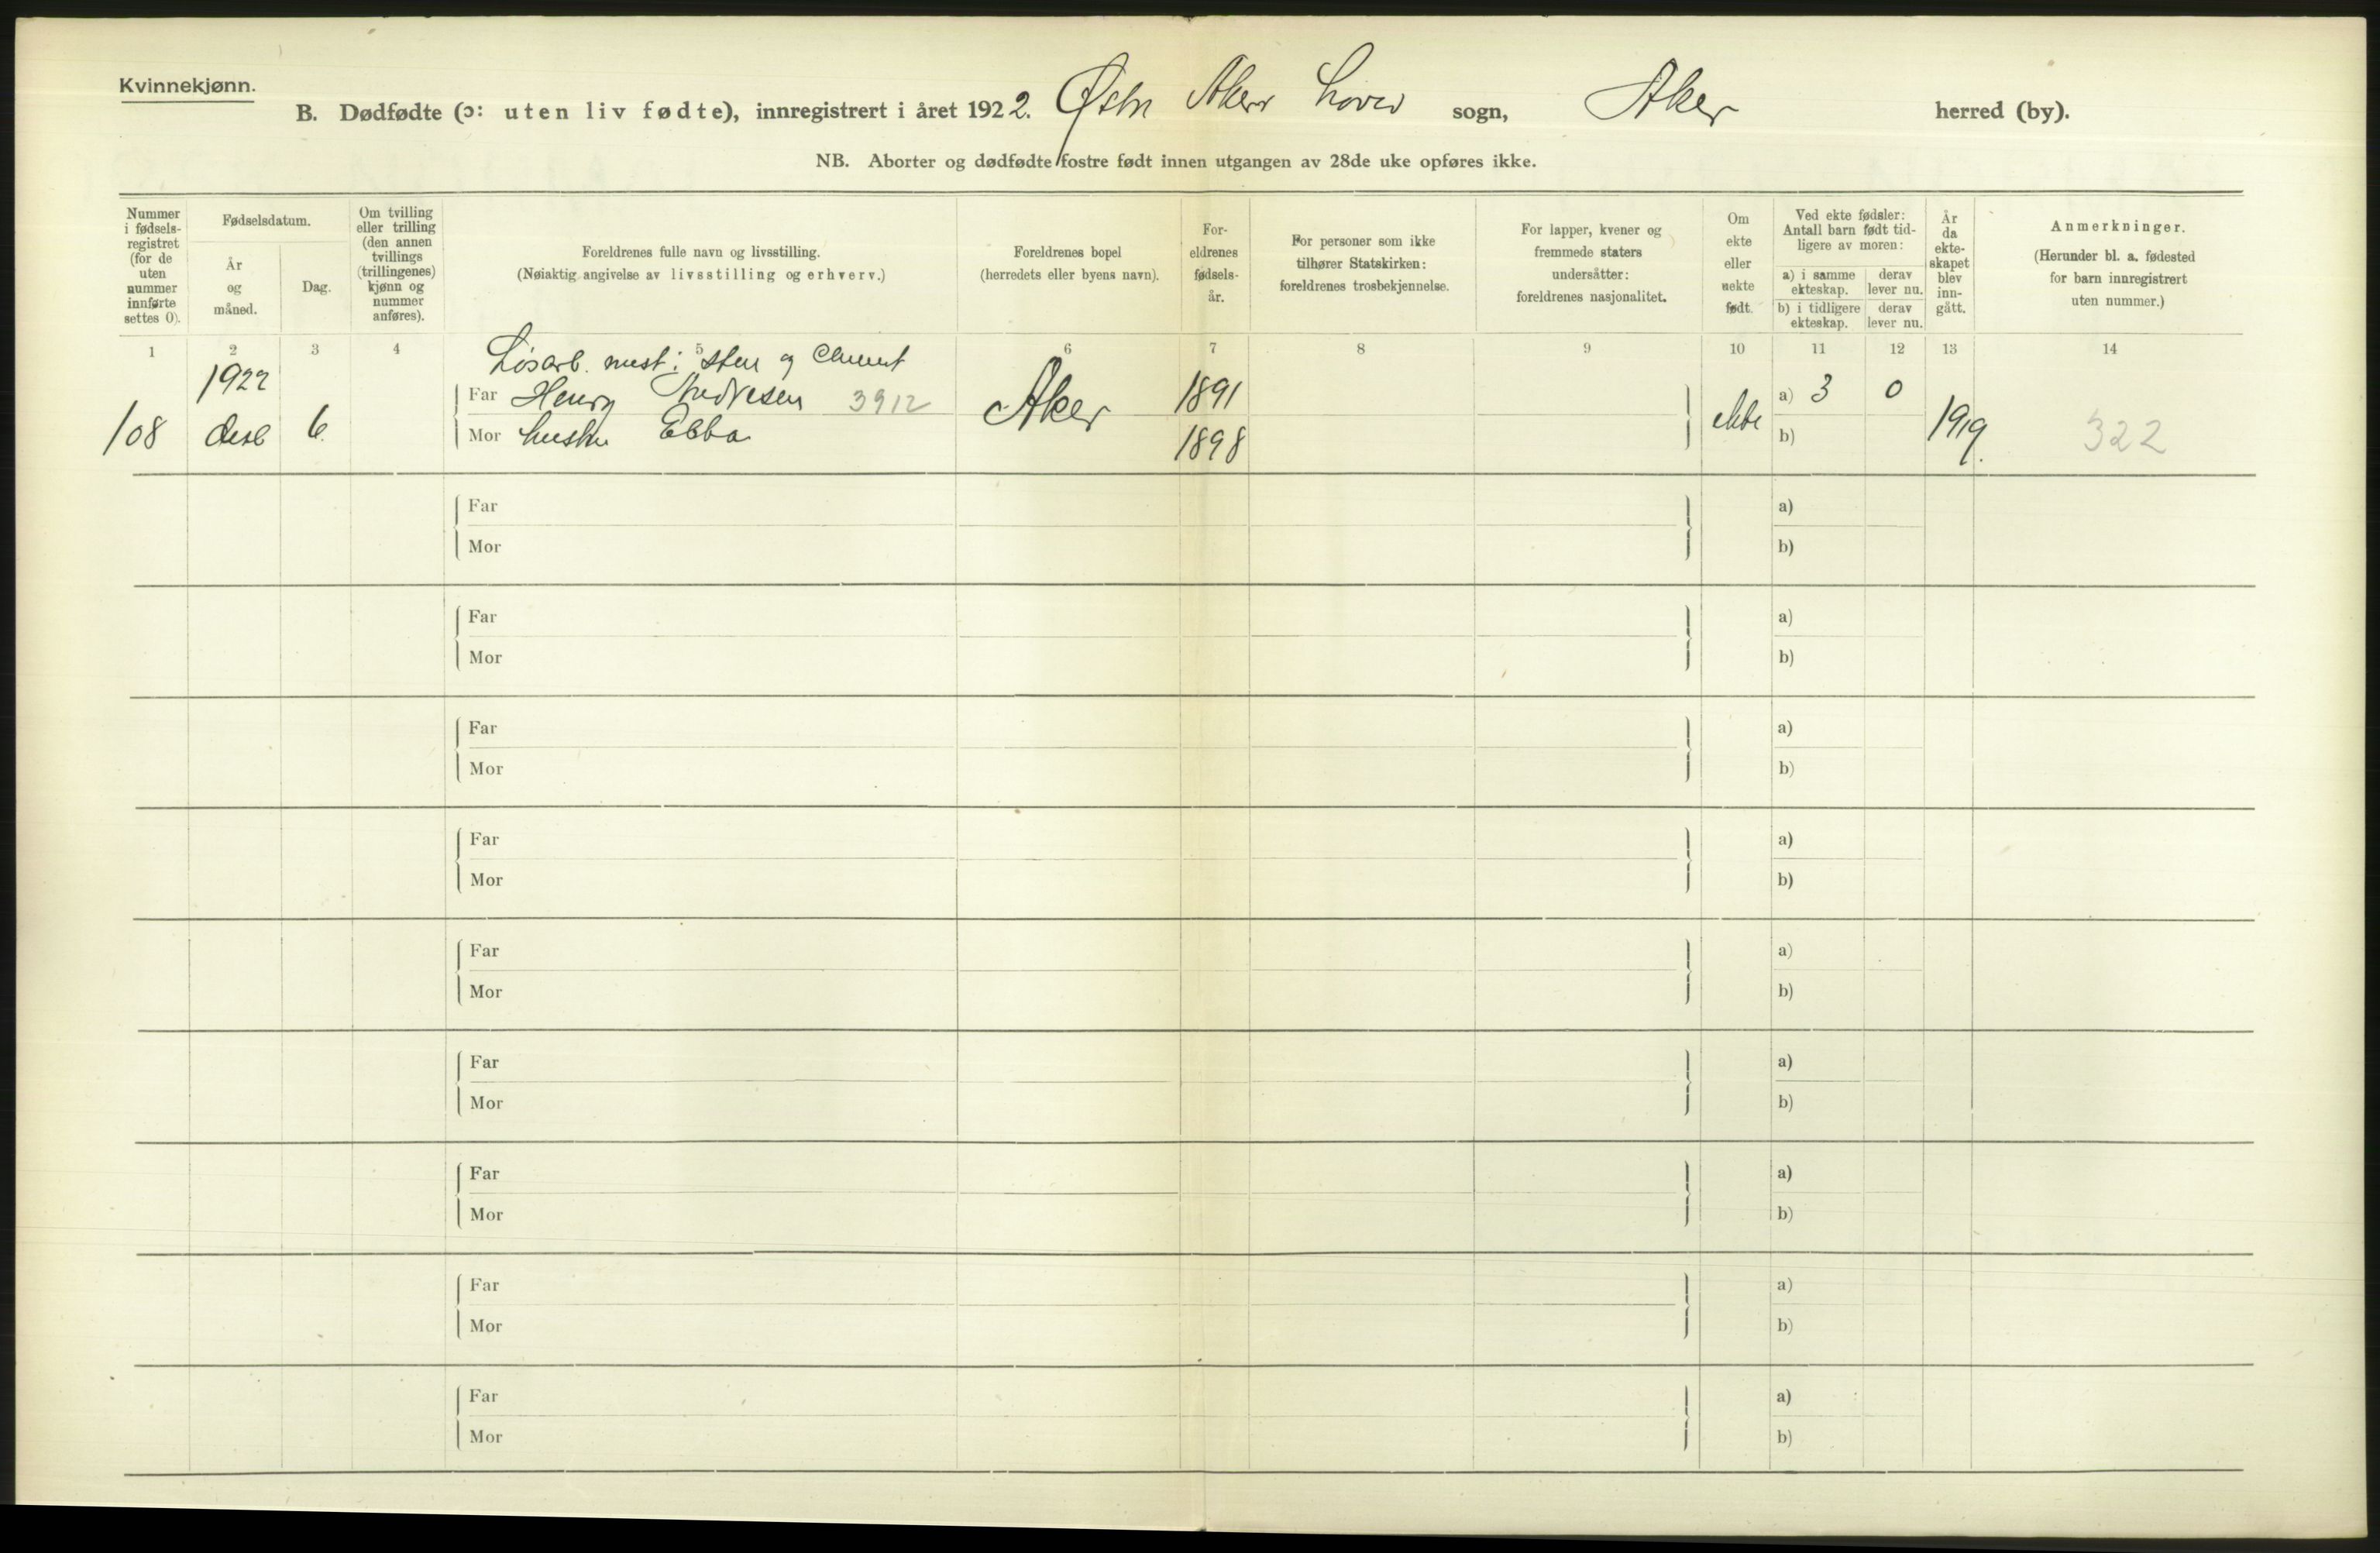 Kvinnekjønn.
B. Dødfødte (ɔ: uten liv fødte), innregistrert i året 1922. Østre Aker hoved sogn, Aker herred (by).
NB. Aborter og dødfødte fostre født innen utgangen av 28de uke opføres ikke.
Nummer i fødsels-registret (for de uten nummer innførte settes 0).
Fødselsdatum.
År og måned.
Dag.
Om tvilling eller trilling (den annen tvillings (trillingenes) kjønn og nummer anføres).
Foreldrenes fulle navn og livsstilling.
(Nøiaktig angivelse av livsstilling og erhverv.)
Foreldrenes bopel
(herredets eller byens navn).
For-eldrenes fødsels-år.
For personer som ikke tilhører Statskirken: foreldrenes trosbekjennelse.
For lapper, kvener og fremmede staters undersåtter: foreldrenes nasjonalitet.
Om ekte eller uekte født.
Ved ekte fødsler: Antall barn født tid-ligere av moren:
a) i samme ekteskap.
derav lever nu.
b) i tidligere ekteskap.
derav lever nu.
År da ekte-skapet blev inn-gått.
Anmerkninger.
(Herunder bl. a. fødested for barn innregistrert uten nummer.)
1 2 3 4 5 6 7 8 9 10 11 12 13 14
Løsarb. mest i sten og Cement
108 1922 desb 6. Far Henry Andresen 3912 Aker 1891 ekte a) 3 0 1919. 322
Mor hustru Ebba 1898 b)
Far a)
Mor b)
Far a)
Mor b)
Far a)
Mor b)
Far a)
Mor b)
Far a)
Mor b)
Far a)
Mor b)
Far a)
Mor b)
Far a)
Mor b)
Far a)
Mor b)